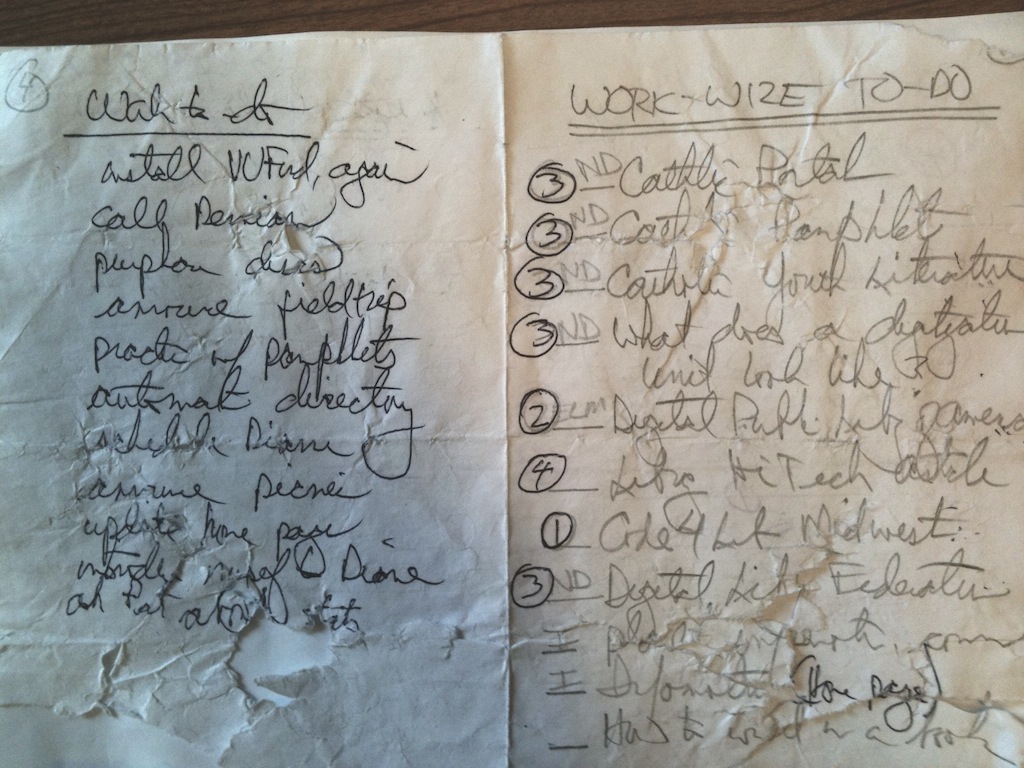 4
install VUFind, again
call Denison
announce fieldtrip
practice w/ pamphlets
automate directory
schedule Diane
announce picnic
update home page
Diane
ask Pat about stats
WORK-WIZE TO-DO
3 ND Catholic Portal
3 ND Catholic Pamphlet
3 ND Catholic Youth Literature
3 ND What does a digitization
unit look like?
2 ELM Digital Public Lib
4 Library HiTech article
1 Code4Lib Midwest
3 ND Digital Library Federation
I
I (Home page)
How to in a book